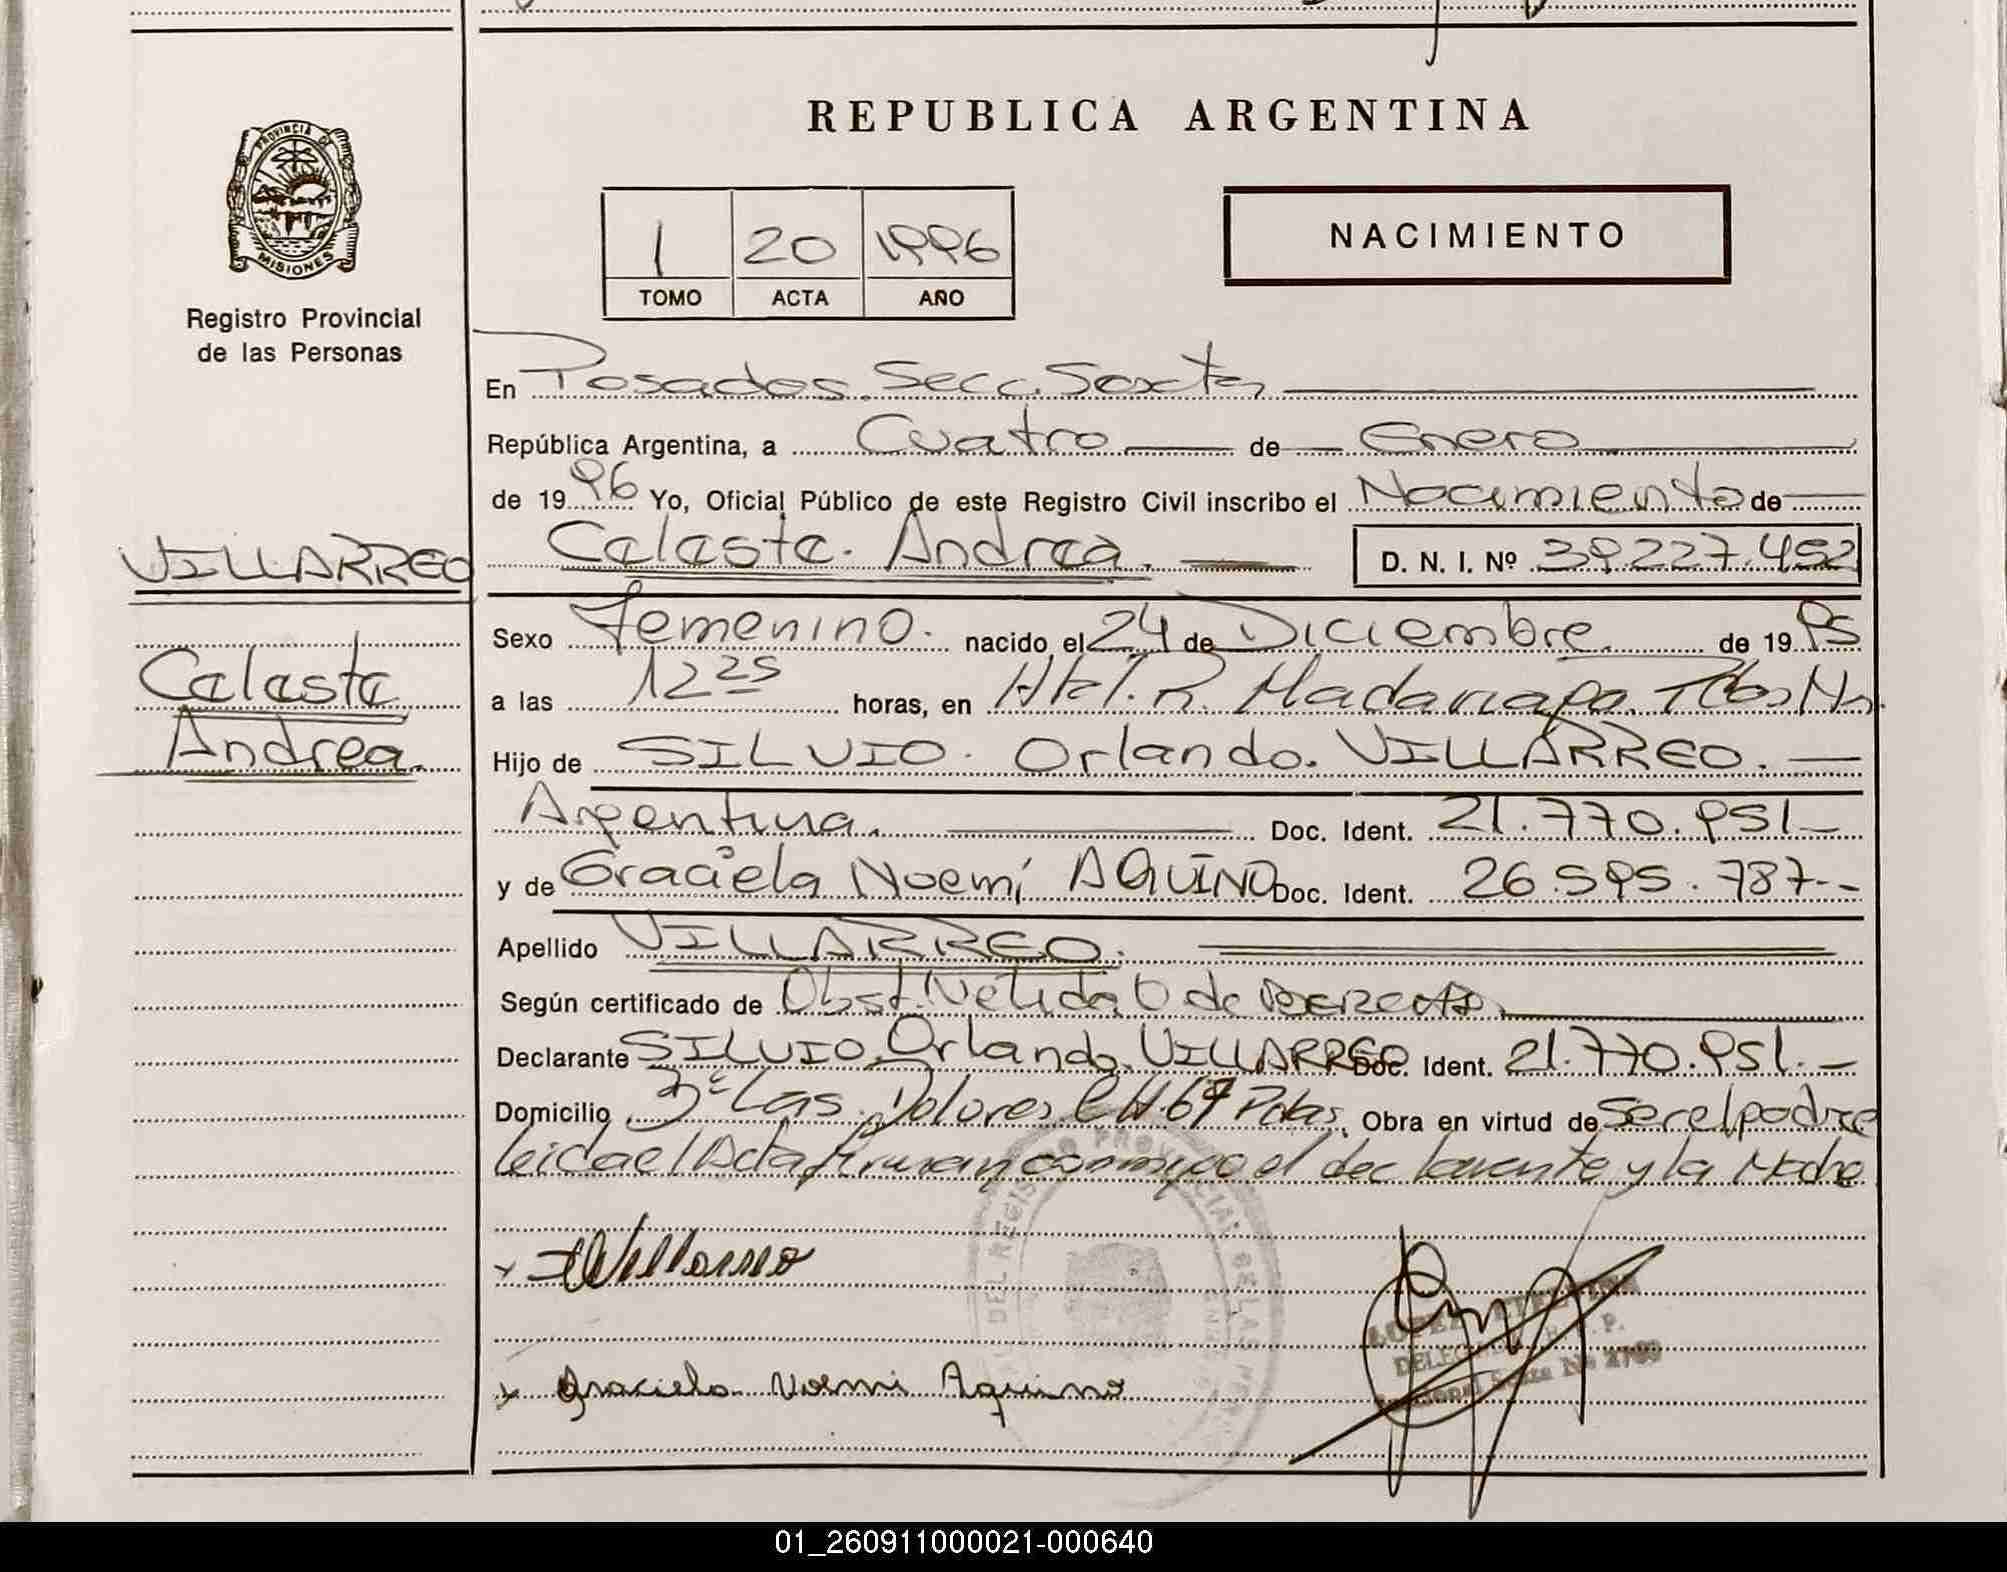 REPUBLICA ARGENTINA
PROVINCIA DE
MISIONES
Registro Provincial
de las Personas
1 20 1996
TOMO ACTA AÑO
NACIMIENTO
En Posadas. Secc. Sexta
República Argentina, a Cuatro de Enero
de 1996 Yo, Oficial Público de este Registro Civil inscribo el Nacimiento de
VILLARREO
Celeste. Andrea.
D. N. I. Nº 39.227.452
Sexo Femenino. nacido el 24 de Diciembre de 1995
Celeste
a las 12 25 horas, en Htal. R. Madariaga. Pdas Mns.
Andrea.
Hijo de SILVIO. Orlando. VILLARREO.
Argentina. Doc. Ident. 21.770.951
y de Graciela Noemí AQUINO Doc. Ident. 26.595.787
Apellido VILLARREO.
Según certificado de Obst. Nelida de
Declarante SILVIO. Orlando. VILLARREO Doc. Ident. 21.770.951.
Domicilio Las Dolores CH. 67 Pdas, Obra en virtud de Ser el padre
leida el Acta firman conmigo el declarante y la Madre
Graciela Noemi Aquino
DEL REGISTRO PROVINCIAL DE LAS
LOPEZ
01_260911000021-000640